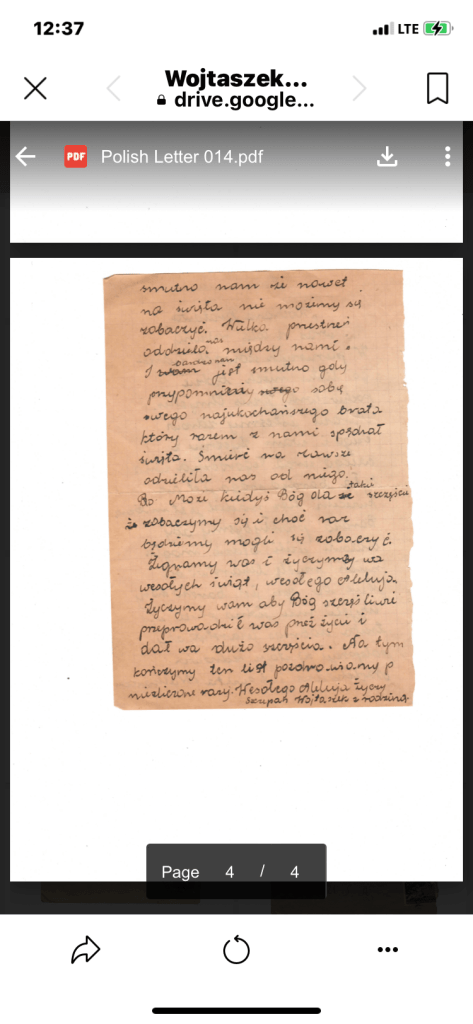 12:37
LTE
Wojtaszek...
drive.google...
PDF Polish Letter 014.pdf
smutno nam że nawet
na święta nie możemy się
zobaczyć. Wilka przestrzeń
oddziela nas między nami.
I bardzo nam jest smutno gdy
przypomnimy sobę
swego najukochańszego brata
który razem z nami spędzał
święta. Śmierć na zawsze
odzieliła nas od niego.
Może kiedyś Bóg da takie szczęście
że zobaczymy się i choć raz
będziemy mogli się zobaczyć.
Żegnamy was i życzymy wa
wesołych świąt, wesołego Aleluja.
Życzymy wam aby Bóg szczęśliwie
przeprowadził was przez życie i
dał wa dużo szczęścia. Na tym
kończymy ten list pozdrowiamy p
niezliczone razy. Wesołego Aleluja życzy
Szczepan Wojtaszek z rodziną.
Page 4 / 4